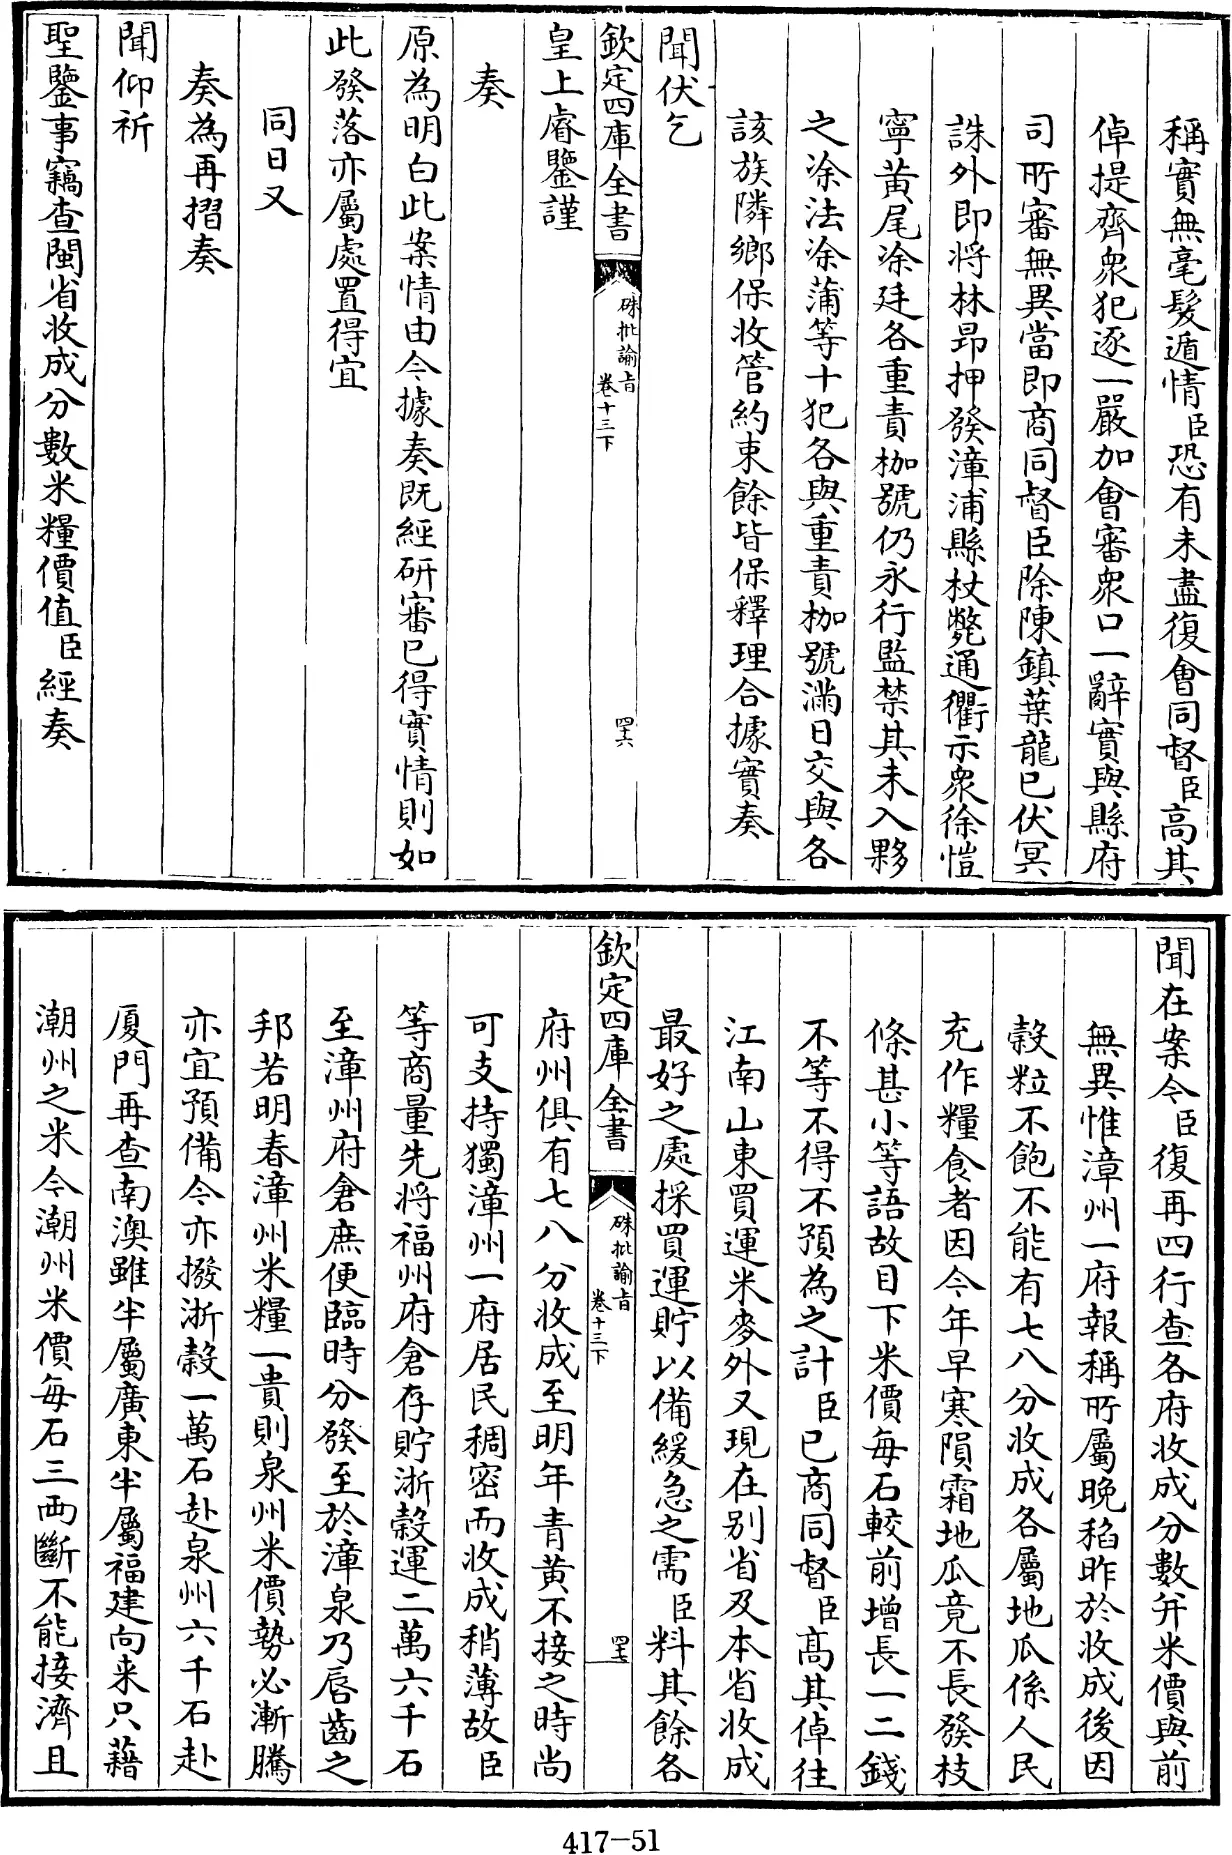 稱實無毫髮遁情臣恐有未盡復會同督臣高其
倬提齊衆犯逐一嚴加會審衆口一辭實與縣府
司所審無異當即商同督臣除陳鎮葉龍已伏冥
誅外即將林昂押發漳浦縣杖斃通衢示衆徐愷
寧黃尾涂廷各重責枷號仍永行監禁其未入夥
之涂法涂蒲等十犯各與重責枷號滿日交與各
該族隣鄉保收管約束餘皆保釋理合據實奏
聞伏乞
欽定四庫全書
硃批諭旨
卷十三下
四十六
皇上睿鑒謹
奏
原為明白此案情由今據奏既經研審已得實情則如
此發落亦屬處置得宜
同日又
奏為再摺奏
聞仰祈
聖鑒事竊查閩省收成分數米糧價值臣經奏
聞在案今臣復再四行查各府收成分數并米價與前
無異惟漳州一府報稱所屬晚稻昨於收成後因
穀粒不飽不能有七八分收成各屬地瓜係人民
充作糧食者因今年早寒隕霜地瓜竟不長發枝
條甚小等語故目下米價每石較前增長一二錢
不等不得不預為之計臣已商同督臣高其倬往
江南山東買運米麥外又現在别省及本省收成
最好之處採買運貯以備緩急之需臣料其餘各
欽定四庫全書
硃批諭旨
卷十三下
四十七
府州俱有七八分收成至明年青黃不接之時尚
可支持獨漳州一府居民稠密而收成稍薄故臣
等商量先將福州府倉存貯浙穀運二萬六千石
至漳州府倉庶便臨時分發至於漳泉乃唇齒之
邦若明春漳州米糧一貴則泉州米價勢必漸騰
亦宜預備今亦撥浙穀一萬石赴泉州六千石赴
厦門再查南澳雖半屬廣東半屬福建向来只藉
潮州之米今潮州米價每石三兩斷不能接濟且
417-51